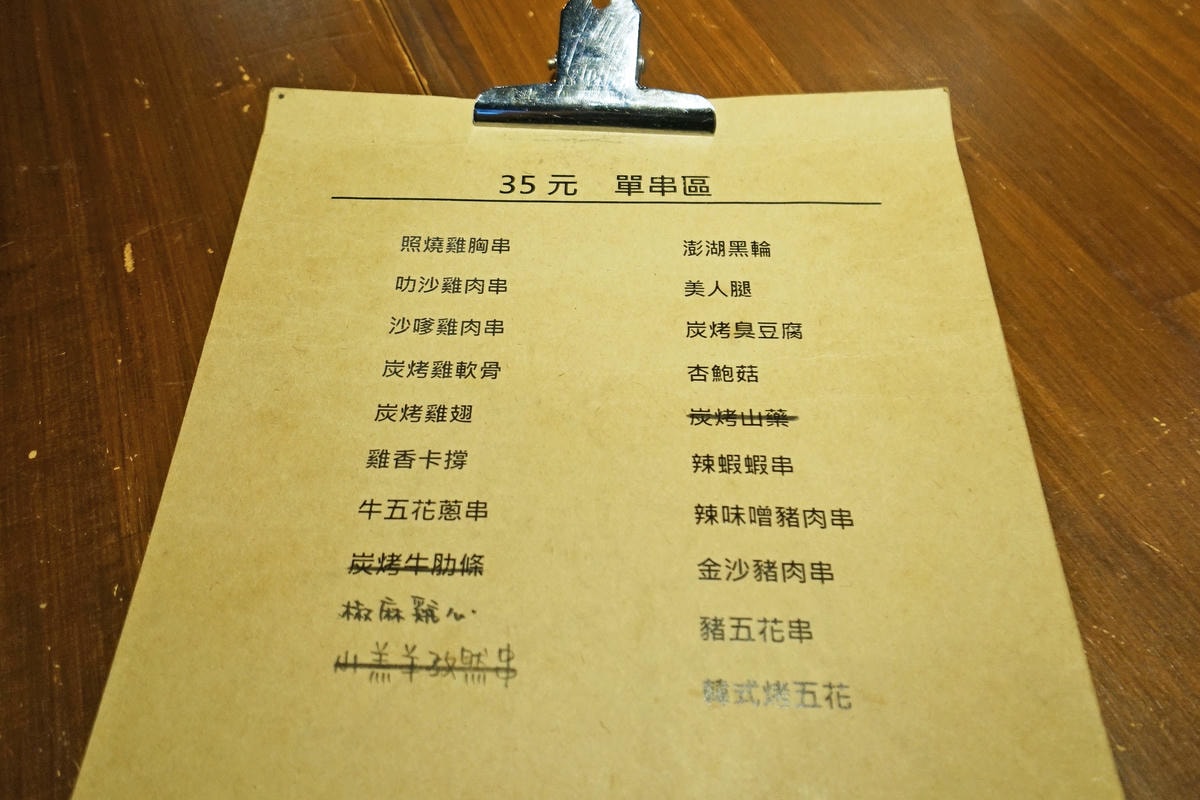 35 元 單串區
照燒雞胸串
叻沙雞肉串
沙嗲雞肉串
炭烤雞軟骨
炭烤雞翅
雞香卡撐
牛五花蔥串
炭烤牛肋條
椒麻雞心
山羔羊孜然串
澎湖黑輪
美人腿
炭烤臭豆腐
杏鮑菇
炭烤山藥
辣蝦蝦串
辣味噌豬肉串
金沙豬肉串
豬五花串
韓式烤五花